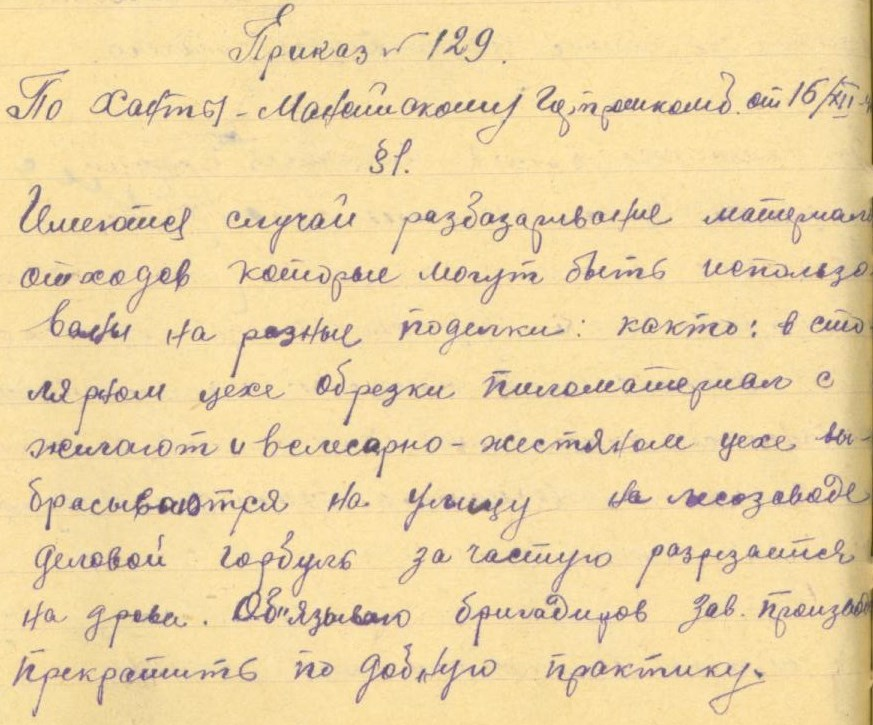 Приказ № 129.
По Ханты-Мансийскому Гор.промкомб. от 16/XII
§1.
Имеются случаи разбазаривание материал
отходов которые могут быть использо
ваны на разные поделки: както: в сто
лярном цехе обрезки пиломатериал с
жигают и вслесарно-жестяном цехе вы-
брасываются на улицу на лесозаводе
деловой горбуль за частую разрезается
на дрова. Об"язываю бригадиров зав. производ
прекратить по добную практику.